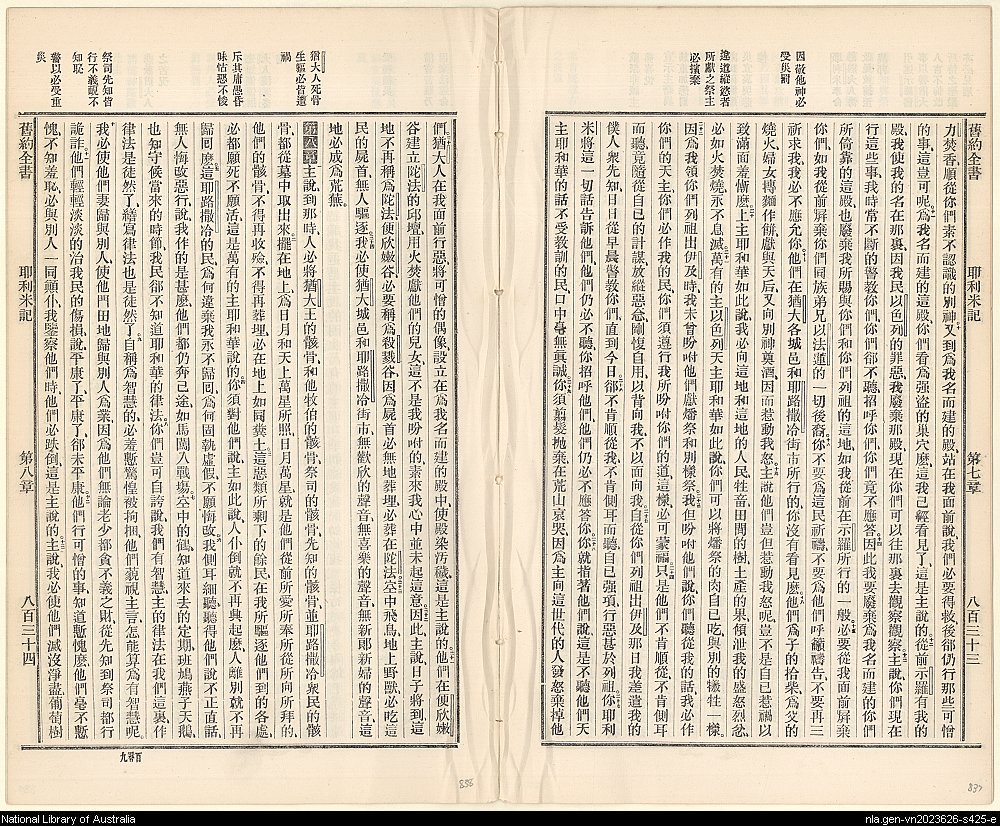 因敬他神必
受災罰
違道縱慾者
所獻之祭主
必擯棄
舊約全書 耶利米記 第七章 八百三十三
力焚香、順從你們素不認識的別神、又到爲我名而建的殿、站在我面前說、我們必要得救、後卻仍行那些可憎
的事、這豈可呢、爲我名而建的這殿、你們看爲強盜的巢穴麽、這我已經看見了、這是主說的、從前示羅有我的
殿、我使我的名在那裏、因我民以色列的罪惡、我廢棄那殿、現在你們可以往那裏去觀察觀察、主說、你們現在
行這些事、我時常不斷的警教你們、你們卻不聽、招呼你們、你們竟不應答、因此我要廢棄爲我名而建的、你們
所倚靠的這殿、也廢棄我所賜與你們、和你們列祖的這地、如我從前在示羅所行的一般、必要從我面前屏棄
你們、如我從前屏棄你們同族弟兄以法蓮的一切後裔、你不要爲這民祈禱、不要爲他們呼籲禱告、不要再三
祈求我、我必不應允你、他們在猶大各城邑和耶路撒冷街市所行的、你沒有看見麽、他們爲子的拾柴、爲父的
燒火、婦女摶麵作餅、獻與天后、又向別神奠酒、因而惹動我怒、主說、他們豈但惹動我怒呢、豈不是自己惹禍、以
致滿面羞慚麽、上主耶和華如此說、我必向這地、和這地的人民牲畜、田間的樹、土產的果、傾泄我的盛怒烈忿、
必如火焚燒、永不息滅、萬有的主以色列天主耶和華如此說、你們可以將燔祭的肉自己吃、與別的犧牲一樣、
因爲我領你們列祖出伊及時、我未曾吩咐他們獻燔祭和別樣祭、我但吩咐他們說、你們聽從我的話、我必作
你們的天主、你們必作我的民、你們須遵行我所吩咐你們的道、這樣必可蒙福、只是他們不肯順從、不肯側耳
而聽、竟隨從自己的計謀、放縱惡念、剛愎自用、以背向我、不以面向我、自從你們列祖出伊及那日、我差遣我的
僕人衆先知、日日從早晨警教你們、直到今日、卻不肯順從我、不肯側耳而聽、自己强項行惡、甚於列祖、你耶利
米將這一切話告訴他們、他們仍必不聽、你招呼他們、他們仍必不應答你、你就指著他們說、這是不聽他們天
主耶和華的話、不受教訓的民、口中毫無眞誠、你須剪髮抛棄、在荒山哀哭、因爲主向這世代的人發怒、棄掉他
猶大人死骨
生軀必皆遭
禍
斥其庸愚昏
昧怙惡不悛
祭司先知皆
行不義靦不
知恥
警以必受重
災
們、猶大人在我面前行惡、將可憎的偶像、設立在爲我名而建的殿中、使殿染汚穢、這是主說的、他們在便欣嫩
谷建立陀法的邱壇、用火焚獻他們的兒女、這不是我吩咐的、素來我心中並未起這意、因此主說、日子將到、這
地不再稱爲陀法、便欣嫩谷、必要稱爲殺戮谷、因爲屍首必無地葬埋、必葬在陀法、空中飛鳥、地上野獸、必吃這
民的屍首、無人驅逐、我必使猶大城邑和耶路撒冷街市、無歡欣的聲音、無喜樂的聲音、無新郞新婦的聲音、這
地必成爲荒蕪、
第八章 主說、到那時、人必將猶大王的骸骨、和他牧伯的骸骨、祭司的骸骨、先知的骸骨、並耶路撒冷衆民的骸
骨、都從墓中取出來、擺在地上、爲日月和天上萬星所照、日月萬星、就是他們從前所愛所奉所從所向所拜的、
他們的骸骨、不得再收殮、不得再葬埋、必在地上如同糞土、這惡類所剩下的餘民、在我所驅逐他們到的各處、
必都願死不願活、這是萬有的主耶和華說的、你須對他們說、主如此說、人仆倒就不再興起麽、人離別就不再
歸回麽、這耶路撒冷的民爲何違棄我、永不歸回、爲何固執虛假、不願悔改、我側耳細聽、聽得他們說不正直話、
無人悔改惡行、說、我作的是甚麽、他們都仍奔己途、如馬闖入戰場、空中的鸛、知道來去的定期、班鳩燕子天鵝、
也知守候當來的時節、我民卻不知道耶和華的律法、你們豈可自誇說、我們有智慧、主的律法在我們這裏、作
律法是徒然了、繕寫律法也是徒然了、自稱爲智慧的、必羞慙驚惶、被拘捆、他們藐視主言、怎能算爲有智慧呢、
我必使他們妻歸與別人、使他們田地歸與別人爲業、因爲他們無論老少、都貪不義之財、從先知到祭司、都行
詭詐、他們輕輕淡淡的治我民的傷損、說、平康了、平康了、卻未平康、他們行可憎的事、知道慙愧麽、他們毫不慙
愧、不知羞恥、必與別人一同顚仆、我鑒察他們時、他們必跌倒、這是主說的、主說、我必使他們滅沒淨盡、葡萄樹
舊約全書 耶利米記 第八章 八百三十四
838
837
National Library of Australia
nla.gen-vn2023626-s425-e